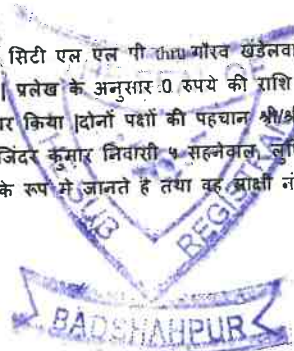 सिटी एल एल पी thru गौरव खंडेलवा
| प्रलेख के अनुसार 0 रुपये की राशि
र किया |दोनों पक्षों की पहचान श्री/श्र
जिंदर कुमार निवासी ५ सहनेवाल, लुि
के रूप मे जानते है तथा वह साक्षी नं
SUB REGISTRAR
BADSHAHPUR